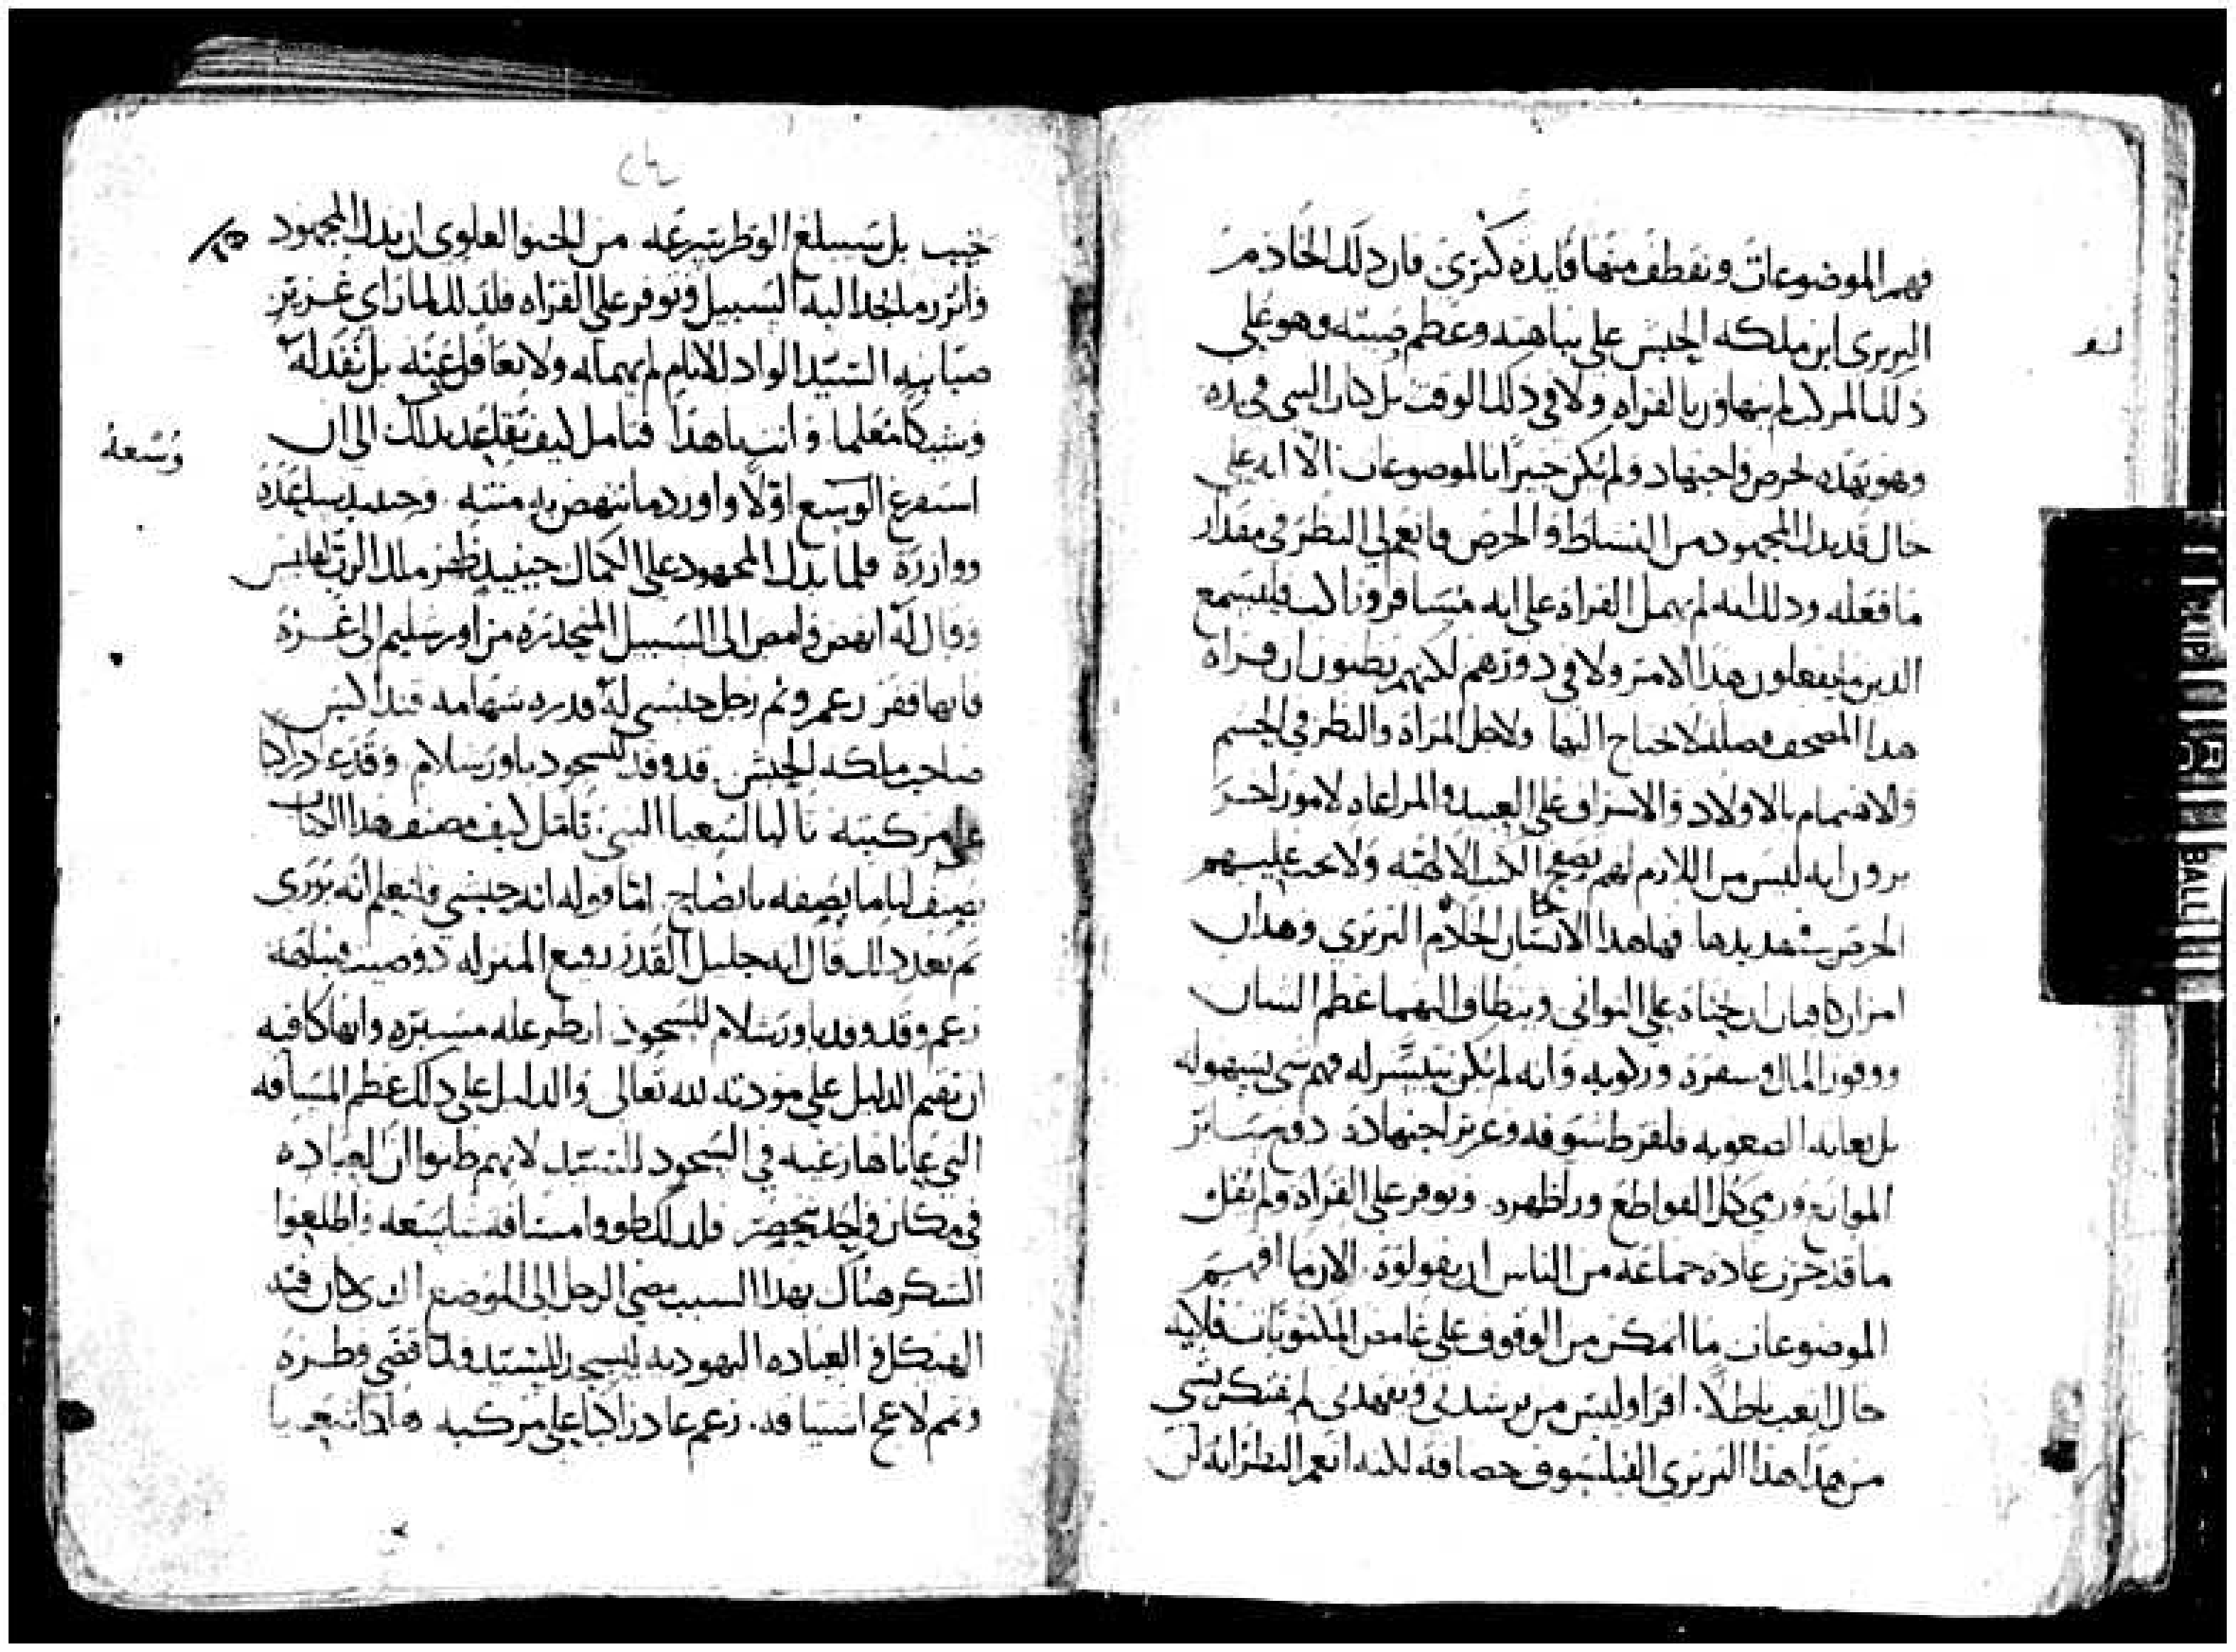 فهم الموضوعات ونقطف منها فايده كبرى فان ذلك الخادم
البربرى ابن ملكه الحبش على نباهته وعظم صيته وهو على
ذلك المركب لم يتهاون بالقراه ولا فى ذلك الوقت بل كان النبى فى يده
وهو يهذه بحرص واجتهاد ولم يكن خبيرًا بالموضوعات الّا انه على
حال قد بدل المجهود من النشاط والحرص فانعم لى النظر فى مقدار
ما فعله وذلك انه لم يهمل القراه على انه مسافر وراكب فليسمع
الذين ما يفعلون هذا الامر ولا فى دورهم لانهم يظنون ان قراه
هذا المصحف فضله لا يحتاج اليها ولاجل المراه والنظر فى الجسم
والاهتمام بالاولاد والاسراف على العبيد والمراعاه لامور اخر
يرون انه ليس من اللازم لهم تصفح الكتب الالاهيّه ولا يجب عليهم
الحرص شديدها فها هذا الانسان الخادم البربرى وهذان
امران كافيان ان يحثاه على التوانى وينضاف اليهما عظم الشان
ووفور المال وسفره وركوبه وانه لم يكن يتيسّر له فهم شى بسهوله
بل بعانه الصعوبه فلفرط شوقه وعزيز اجتهاده دوخ ساير
الموانع ورمى كل القواطع ورا ظهره وتوفر على القراه ولم يقل
ما قد جرت عاده جماعه من الناس ان يقولوه الان ما افهم
الموضوعات ما اتمكن من الوقوف على غامض المكتوبات فلايه
حال اتعب باطلاً اقرا وليس من يرشدنى ويفهمنى لم يفتكر بشى
من هذا هذا البربرى الفيلسوف حصافه لكنه انعم النظر انه لن
لنو
٢٤
يخيب بل سيبلغ الوطر بسرعه من الحنو العلوى ان بدل المجهود
واثر ما يجد اليه السبيل وتوفر على القراه فلذلك لما راى غزير
صبابته السيّد الواد للانام لم يهماله ولا يغافل عنه بل نفد له
وشيكًا معلما وانت يا هذا فتامل كيف تقاعد بذلك الى ان
وسعهُ
استفرغ الوسع اوّلًا واورد ما تنهض به منته وحينيد ساعده
ووازره فلما بدل المجهود على الكمال حينيد ظهر ملك الرب لفليبس
وقال له انهض وامض الى السبيل المنحدره من اورشليم الى غزه
فانها قفر زعم وثم رجل حبشى له قدره شهامه قنداكيس
صاحب ملكه الحبش قد وفد للسجود باورشلام وقد عاد راكبا
على مركبته تاليا اشعيا النبى تامّل كيف مصنف هذا الكتاب
يصف لنا ما يصفه بايضاح امّا قوله انه حبشى فلنعلم انّه بربرى
ثم بعد ذلك قال انه جليل القدر رفيع المنزله ذو صيت ونباهه
زعم وقد وفد باورشلام للسجود انظر عله مسيره وانها كافيه
ان تقيم الدليل على مودته لله تعالى والدليل على ذلك عظم المسافه
التى عاناها رغبه فى السجود للسيّد لانهم ظنوا ان العباده
فى مكان واحد تحصر فلذلك طووا مسافه شاسعه واطلعوا
الشكر هناك بهذا السبب مضى الرجل الى الموضع الذى كان فيه
الهيكل والعباده اليهوديه ليسجد للسيّد ولما قضى وطره
وتم لاعج اشتياقه زعم عاد راكبا على مركبه هاذا اشعيا